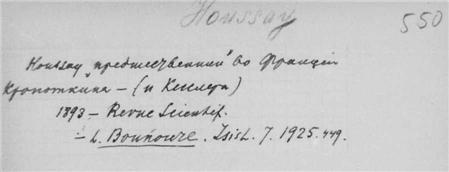 Houssay
550
Houssay „предшественник" во Франции
Кропоткина — (и Кесслера)
1893 — Revue Scientif.
— L. Bounoure. Isis L. 7. 1925. 449.